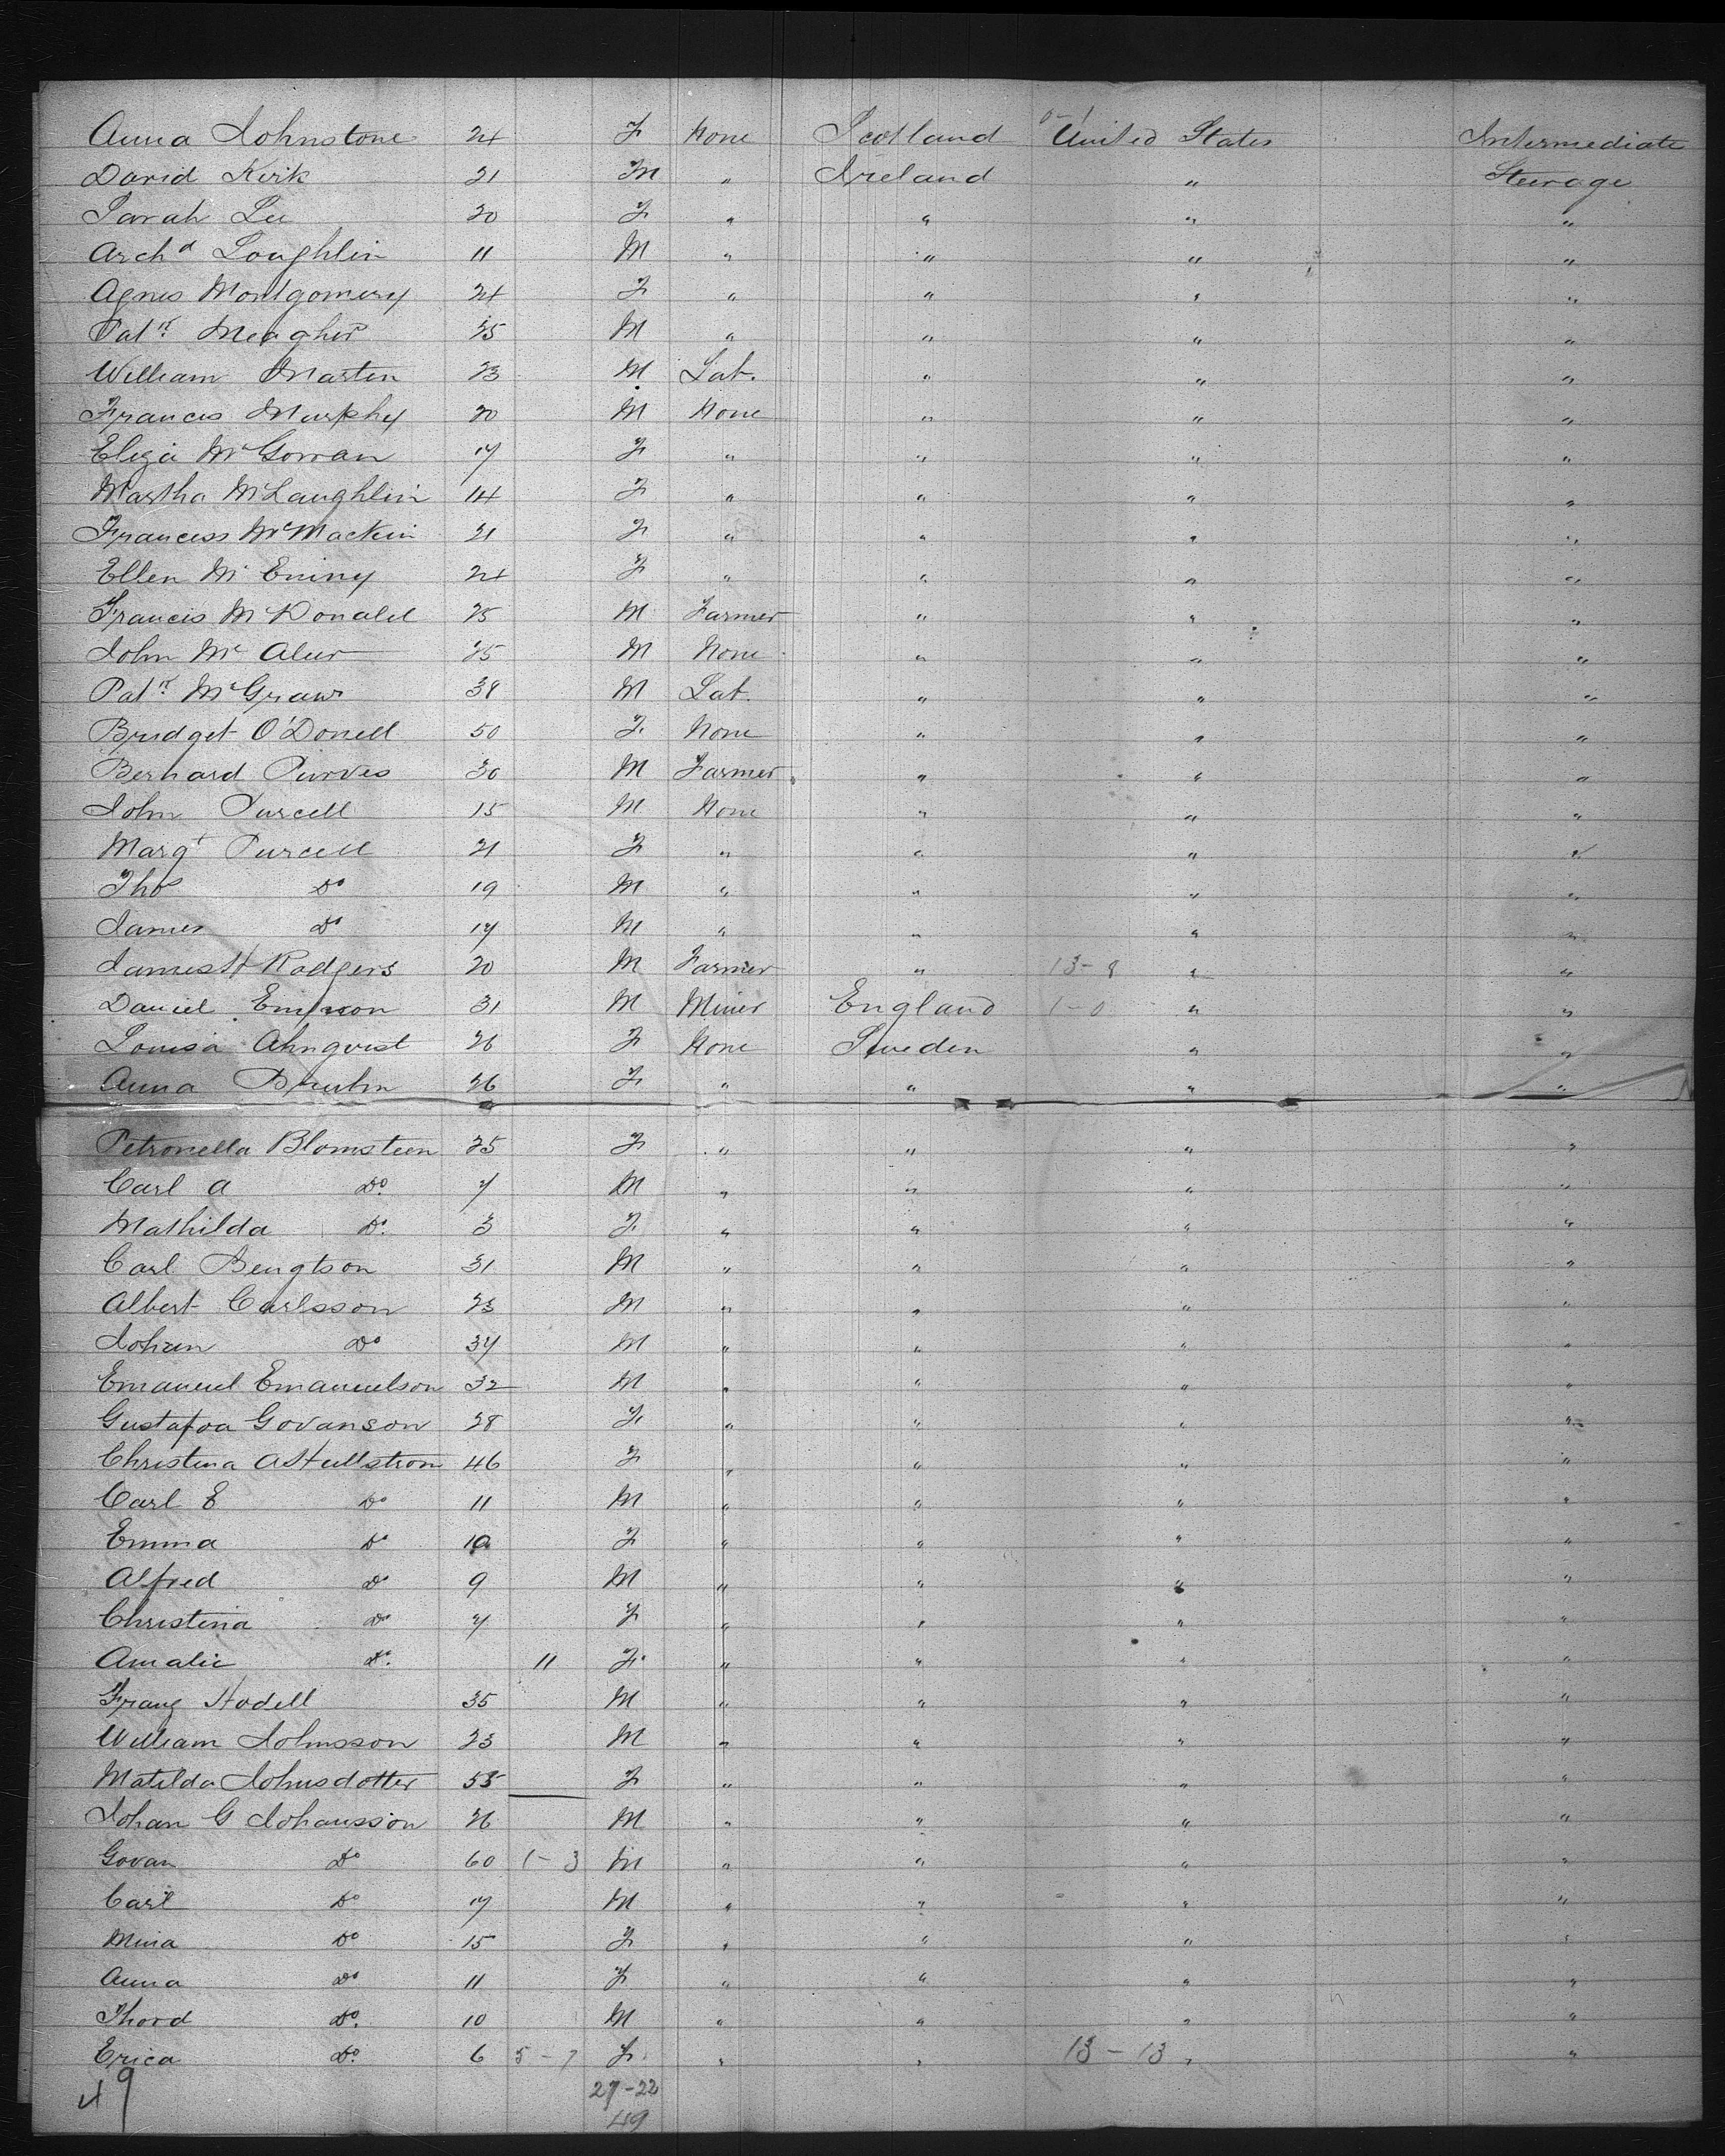 0-1
Anna Johnstone 24 F None Scotland United States Intermediate
David Kirk 21 M " Ireland " Steerage
Sarah Lee 20 F " " " "
Archd Loughlin 11 M " " " "
Agnes Montgomery 24 F " " " "
Patk Meagher 25 M " " " "
William Martin 23 M Lab. " " "
Francis Murphy 20 M None " " "
Eliza McGowan 17 F " " " "
Martha McLaughlin 14 F " " " "
Francess McMackin 21 F " " " "
Ellen Mc Eniny 24 F " " " "
Francis McDonald 25 M Farmer " " "
John Mc Aleer 25 M None " " "
Patk McGraw 38 M Lab. " " "
Bridget O'Donell 50 F None " " "
Bernard Purves 30 M Farmer " " "
John Purcell 15 M None " " "
Margt Purcell 21 F " " " "
Thos Do 19 M " " " "
James Do 17 M " " " "
James H Rodgers 20 M Farmer " 13-8 " "
Daniel Empson 31 M Miner England 1-0 " "
Louisa Ahnqvist 26 F None Sweden " "
Anna 26 F " " " "
Petronella Blomsteen 25 F " " " "
Carl A Do 7 M " " " "
Mathilda Do 3 F " " " "
Carl Bengtson 31 M " " " "
Albert Carlsson 23 M " " " "
Johan Do 34 M " " " "
Emanuel Emanuelson 32 M " " " "
Gustafva Govanson 28 F " " " "
Christina A Hullstrom 46 F " " " "
Carl E Do 11 M " " " "
Emma Do 10 F " " " "
Alfred Do 9 M " " " "
Christina Do 7 F " " " "
Amalie Do 11 F " " " "
Franz Hodell 35 M " " " "
William Johnsson 23 M " " " "
Matilda Johnsdotter 55 F " " " "
Johan G Johansson 26 M " " " "
Govan Do 60 1-3 M " " " "
Carl Do 17 M " " " "
Mina Do 15 F " " " "
Anna Do 11 F " " " "
Thord Do 10 M " " " "
Erica Do 6 5-7 F " " 13-13 " "
49 27-22
49